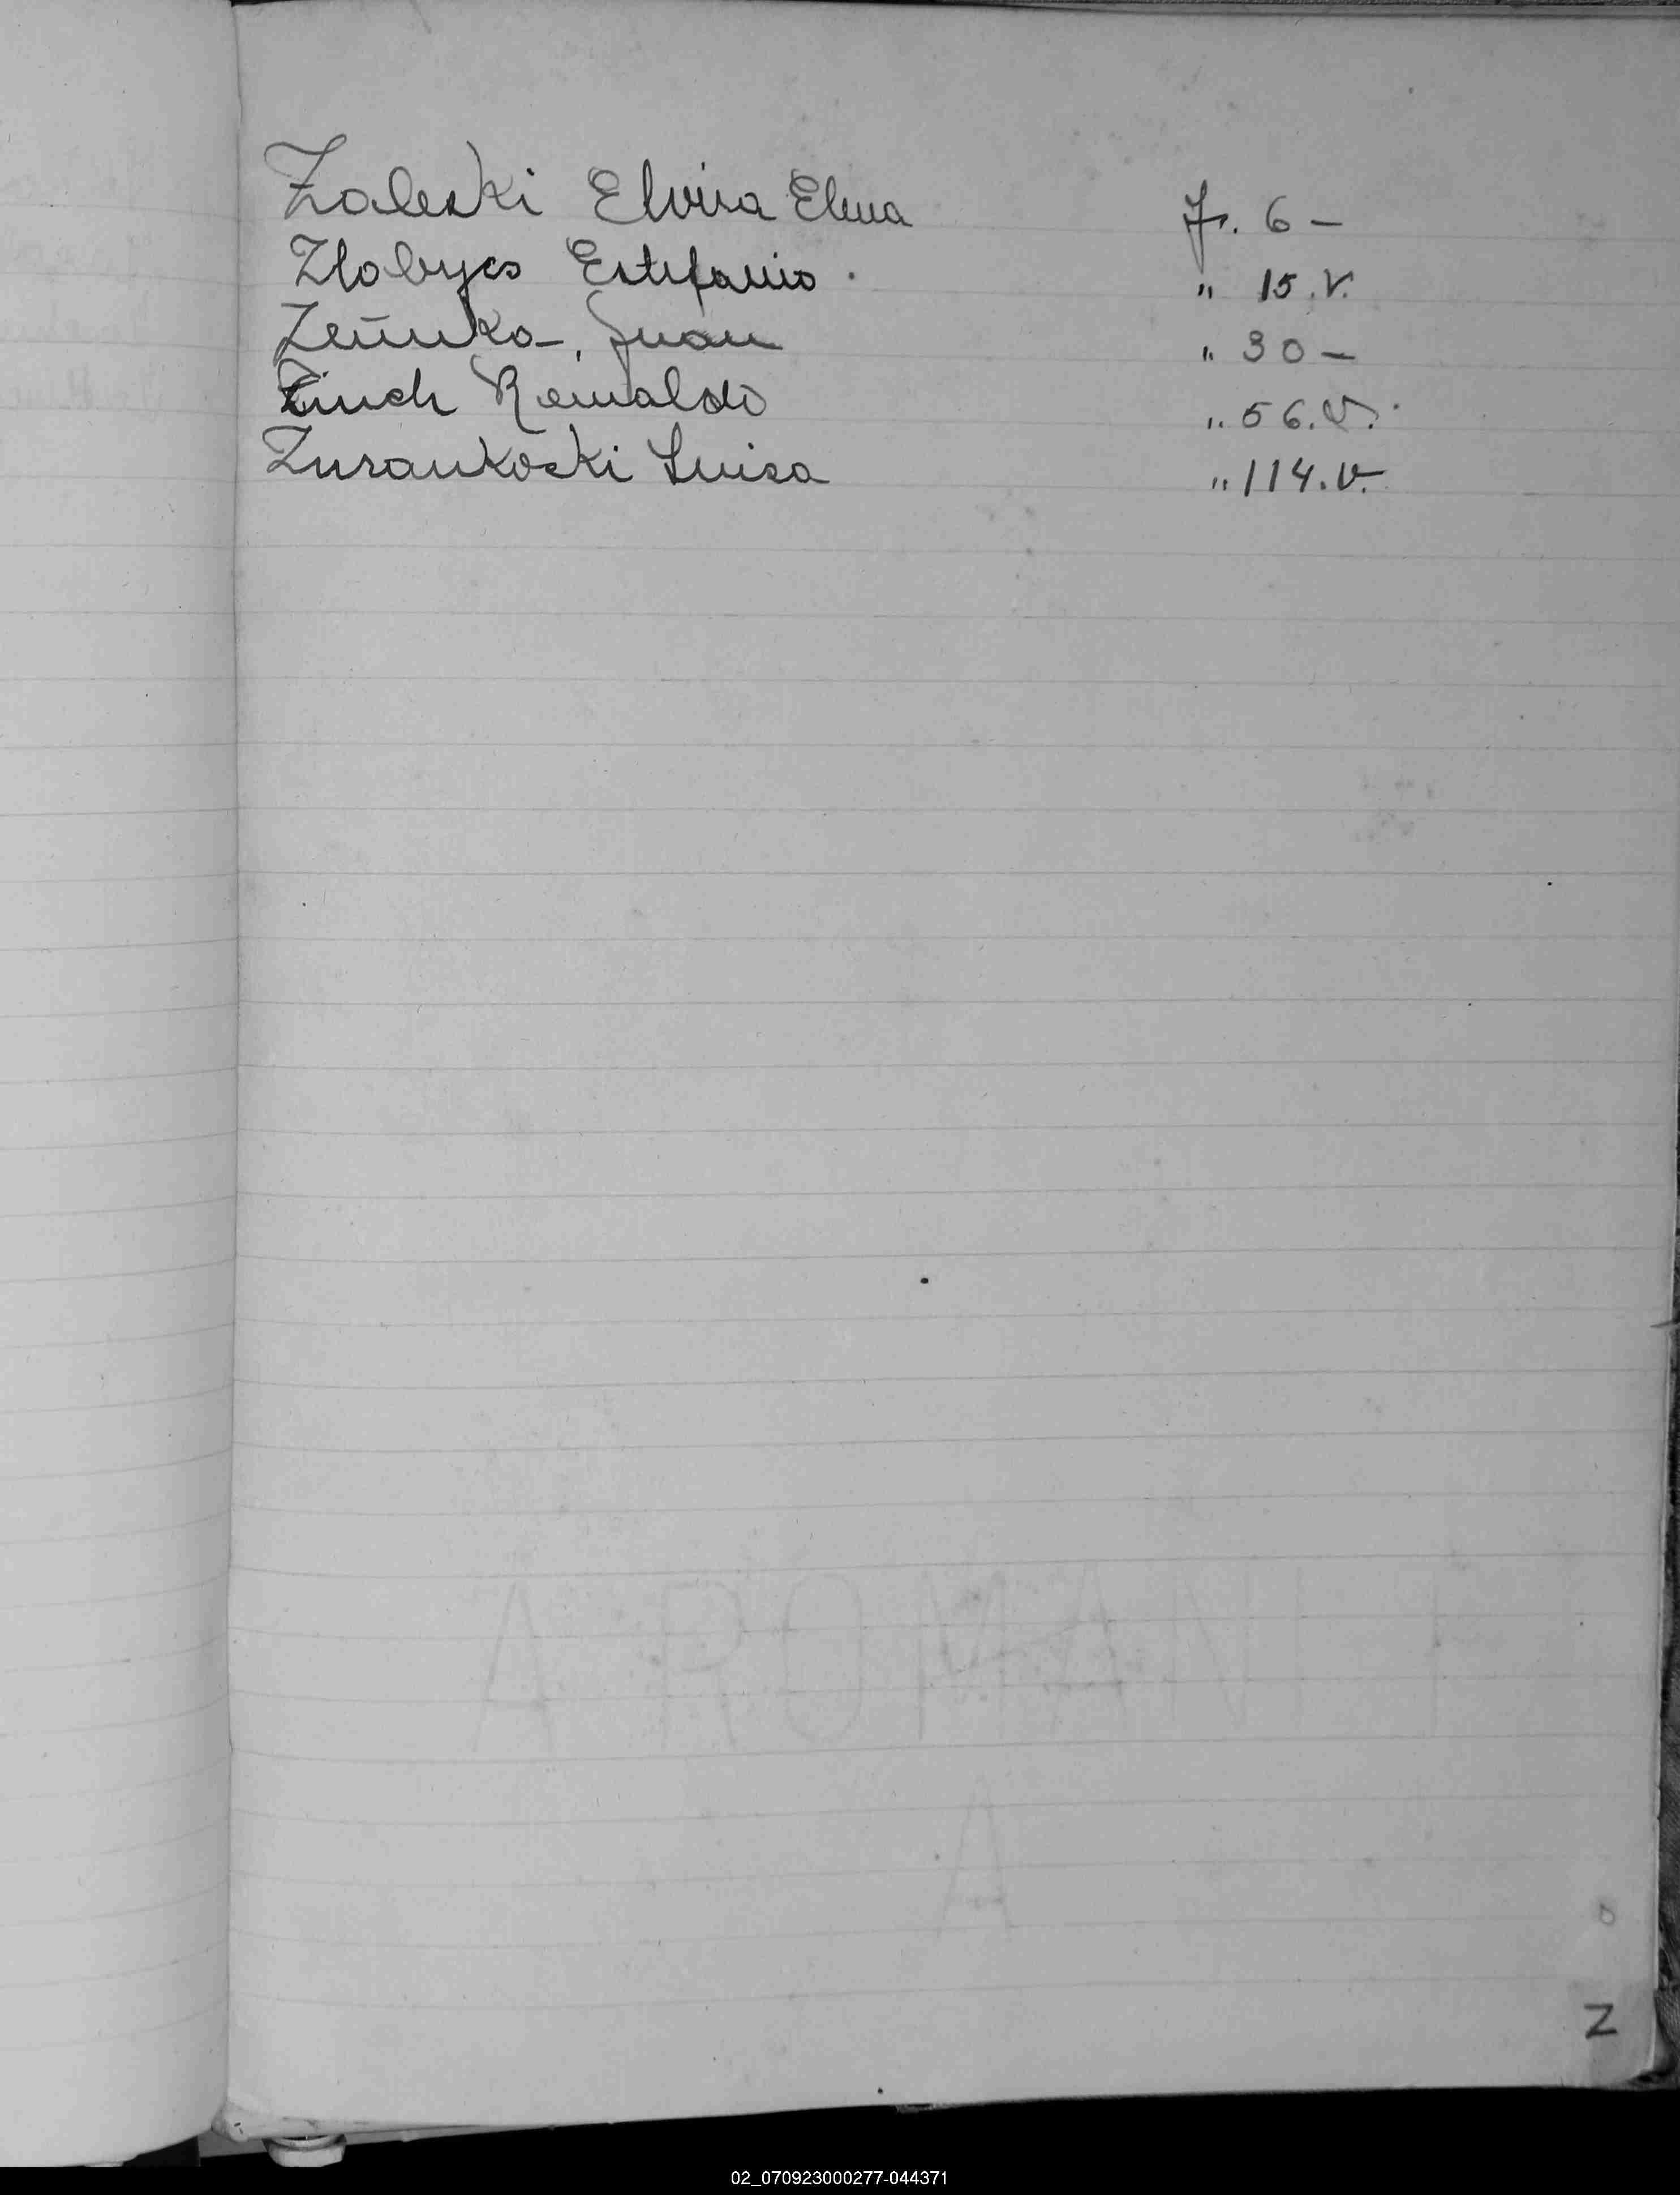 Zaleski Elvira Elena Fs. 6 –
Zlobyes Estefania . " 15. V.
Zeniuka, Juan " 30 –
Zinch Romualdo " 56. V.
Zuraukoski Luisa " 114. V.
A ROMANI
A
Z
02_070923000277-044371